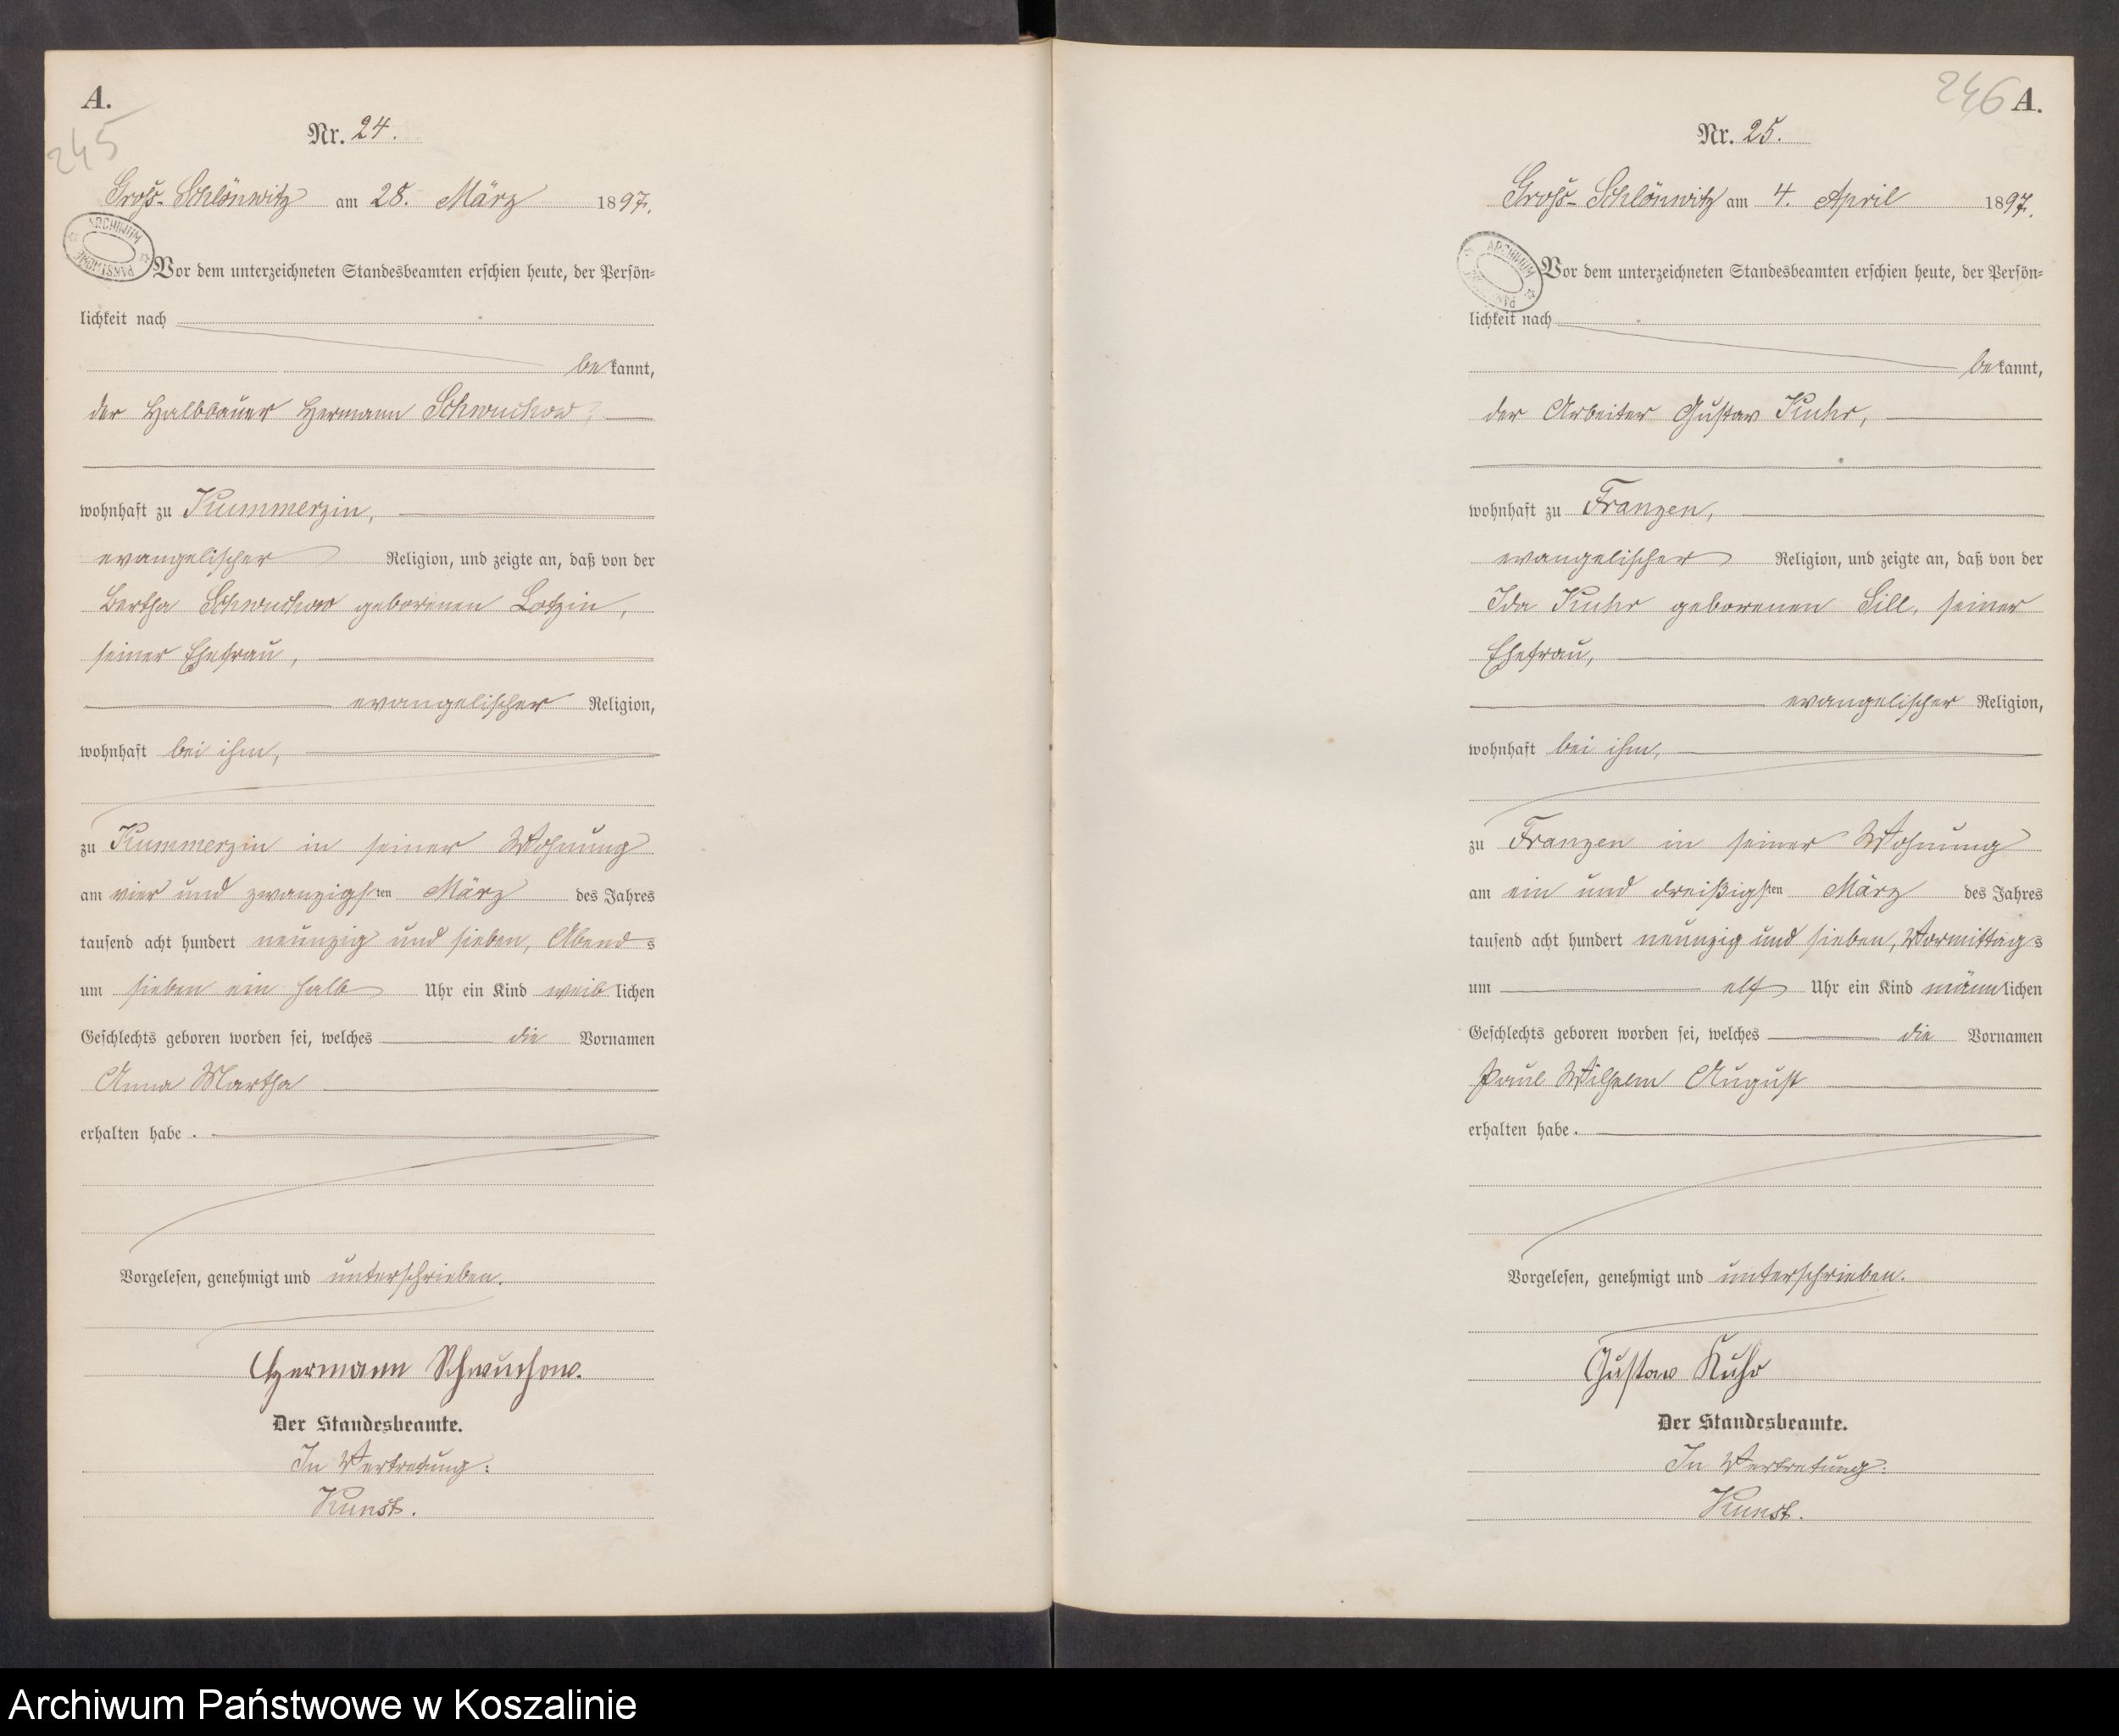 A.
245
Nr. 24.
Groß-Schlönwitz am 28. März 1897.
ARCHIWUM PAŃSTWOWE
Vor dem unterzeichneten Standesbeamten erschien heute, der Persön-
lichkeit nach
bekannt,
der Halbbauer Hermann Schwuchow,
wohnhaft zu Kummerzin,
evangelischer Religion, und zeigte an, daß von der
Bertha Schwuchow geborenen Lotzin,
seiner Ehefrau,
evangelischer Religion,
wohnhaft bei ihm,
zu Kummerzin in seiner Wohnung
am vier und zwanzigsten März des Jahres
tausend acht hundert neunzig und sieben, Abends
um sieben ein halb Uhr ein Kind weiblichen
Geschlechts geboren worden sei, welches die Vornamen
Anna Martha
erhalten habe.
Vorgelesen, genehmigt und unterschrieben.
Hermann Schwuchow.
Der Standesbeamte.
In Vertretung:
Kunst.
246 A.
Nr. 25.
Groß-Schlönwitz am 4. April 1897.
ARCHIWUM
Vor dem unterzeichneten Standesbeamten erschien heute, der Persön-
lichkeit nach
bekannt,
der Arbeiter Gustav Kuhr,
wohnhaft zu Franzen,
evangelischer Religion, und zeigte an, daß von der
Ida Kuhr geborenen Sill, seiner
Ehefrau,
evangelischer Religion,
wohnhaft bei ihm,
zu Franzen in seiner Wohnung
am ein und dreißigsten März des Jahres
tausend acht hundert neunzig und sieben, Vormittags
um elf Uhr ein Kind männlichen
Geschlechts geboren worden sei, welches die Vornamen
Paul Wilhelm August
erhalten habe.
Vorgelesen, genehmigt und unterschrieben.
Gustav Kuhr
Der Standesbeamte.
In Vertretung:
Kunst.
Archiwum Państwowe w Koszalinie